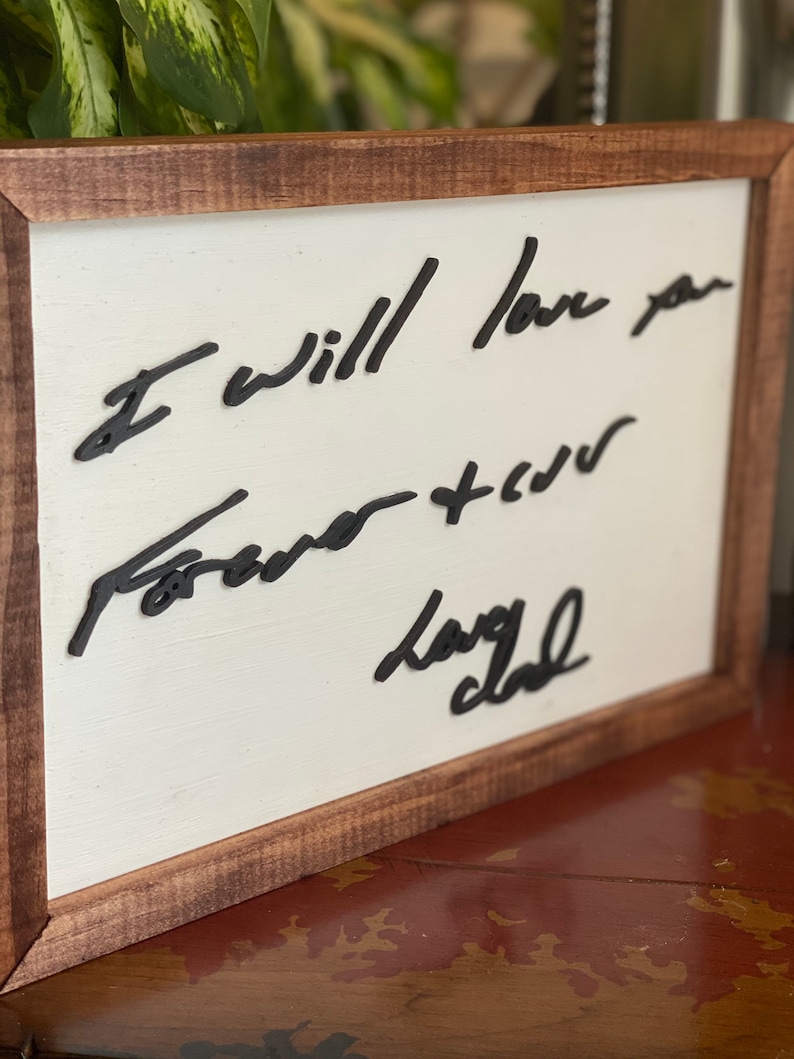 I will love you
Forever + ever
Love,
dad